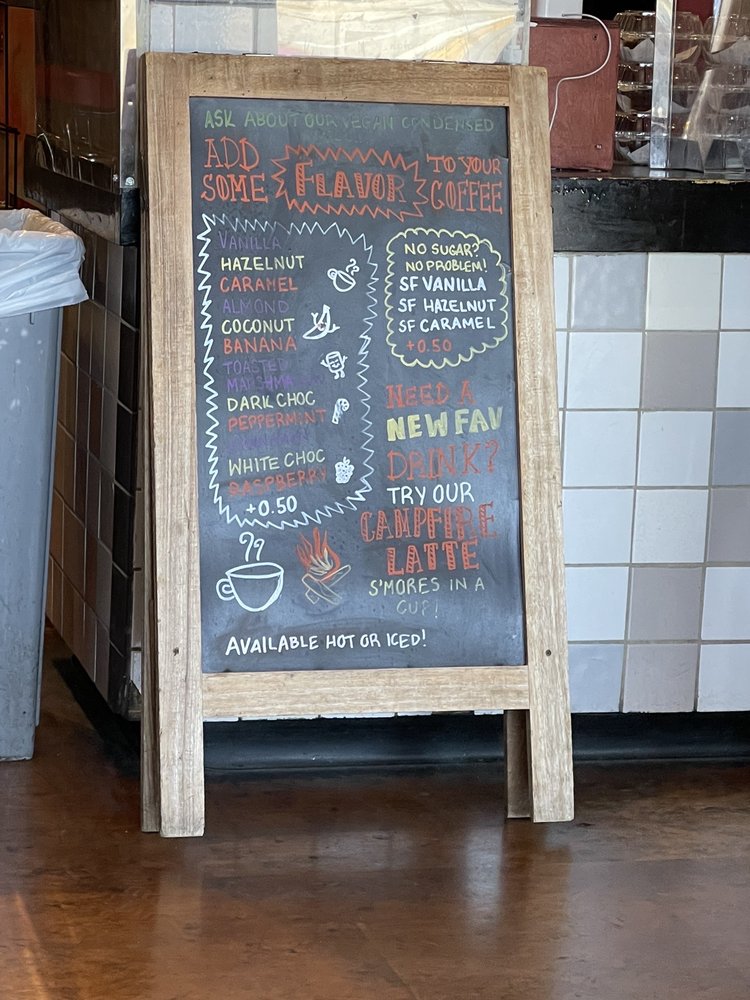 ASK ABOUT OUR VEGAN CONDENSED
ADD SOME FLAVOR TO YOUR COFFEE
VANILLA
HAZELNUT
CARAMEL
ALMOND
COCONUT
BANANA
TOASTED
MARSHMA
DARK CHOC
PEPPERMINT
WHITE CHOC
RASPBERRY
+0.50
NO SUGAR?
NO PROBLEM!
SF VANILLA
SF HAZELNUT
SF CARAMEL
+0.50
NEED A
NEW FAV
DRINK?
TRY OUR
CAMPFIRE
LATTE
S'MORES IN A
CUP!
AVAILABLE HOT OR ICED!